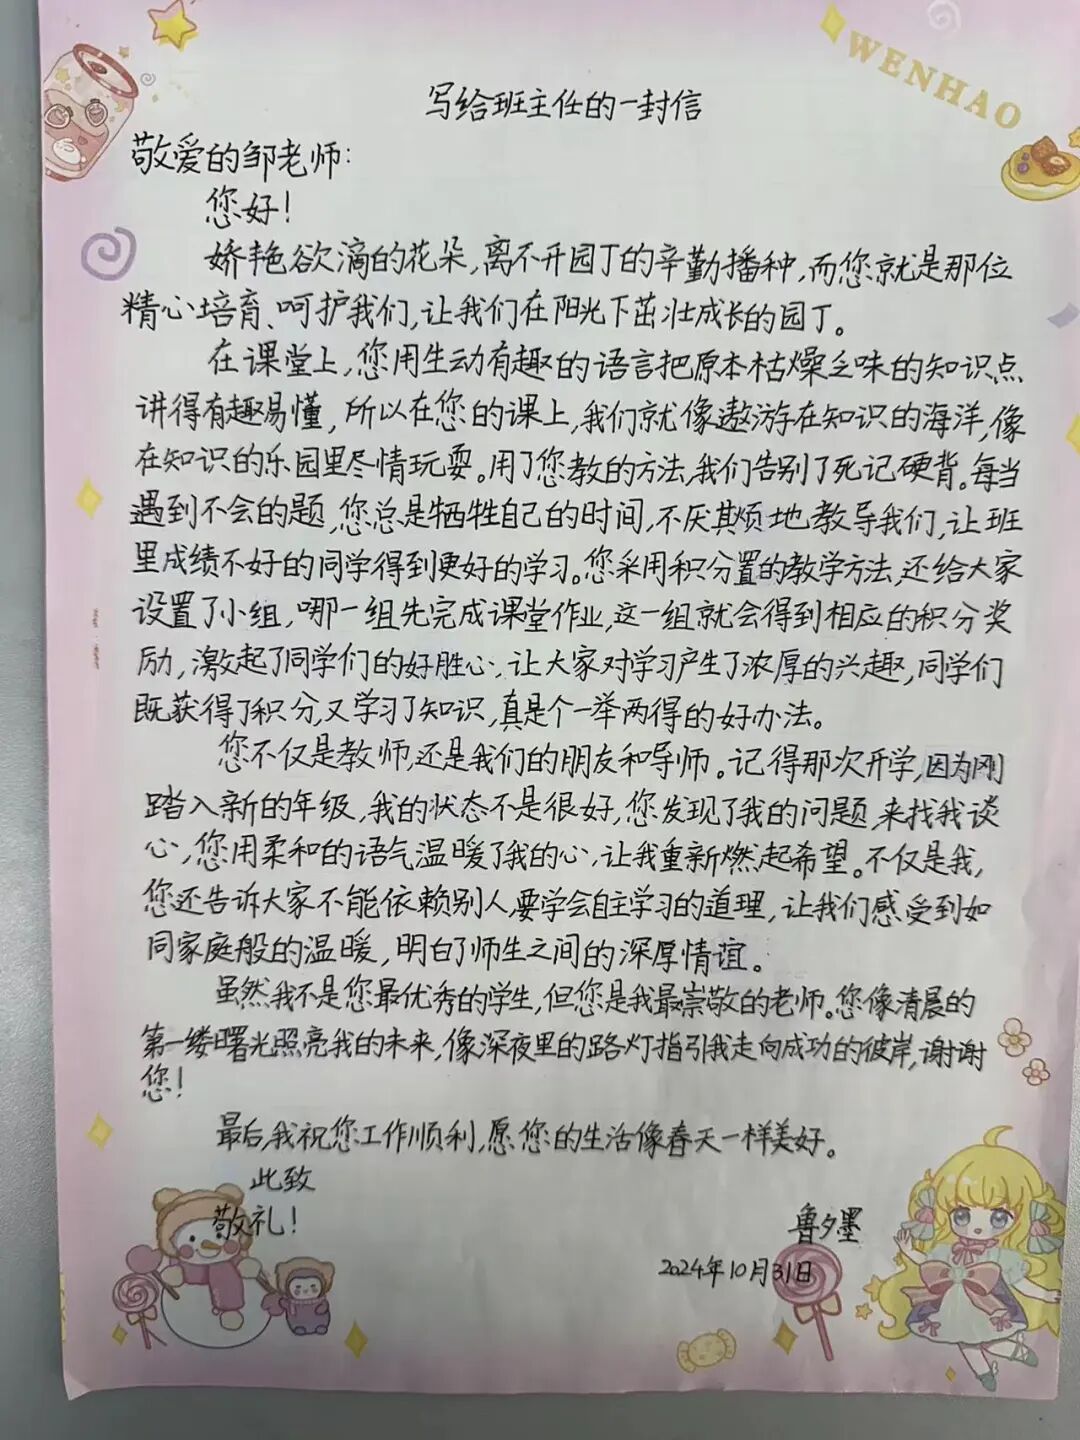 WENHAO
写给班主任的一封信
敬爱的邹老师:
您好!
娇艳欲滴的花朵,离不开园丁的辛勤播种,而您就是那位
精心培育、呵护我们,让我们在阳光下茁壮成长的园丁。
在课堂上,您用生动有趣的语言把原本枯燥乏味的知识点
讲得有趣易懂,所以在您的课上,我们就像遨游在知识的海洋,像
在知识的乐园里尽情玩耍。用了您教的方法,我们告别了死记硬背。每当
遇到不会的题,您总是牺牲自己的时间,不厌其烦地教导我们,让班
里成绩不好的同学得到更好的学习。您采用积分置的教学方法,还给大家
设置了小组,哪一组先完成课堂作业,这一组就会得到相应的积分奖
励,激起了同学们的好胜心,让大家对学习产生了浓厚的兴趣,同学们
既获得了积分,又学习了知识,真是个一举两得的好办法。
您不仅是教师,还是我们的朋友和导师。记得那次开学,因为刚
踏入新的年级,我的状态不是很好,您发现了我的问题,来找我谈
心,您用柔和的语气温暖了我的心,让我重新燃起希望。不仅是我,
您还告诉大家不能依赖别人,要学会自主学习的道理,让我们感受到如
同家庭般的温暖,明白了师生之间的深厚情谊。
虽然我不是您最优秀的学生,但您是我最崇敬的老师。您像清晨的
第一缕曙光照亮我的未来,像深夜里的路灯指引我走向成功的彼岸,谢谢
您!
最后,我祝您工作顺利,愿您的生活像春天一样美好。
此致
敬礼!
鲁夕墨
2024年10月31日